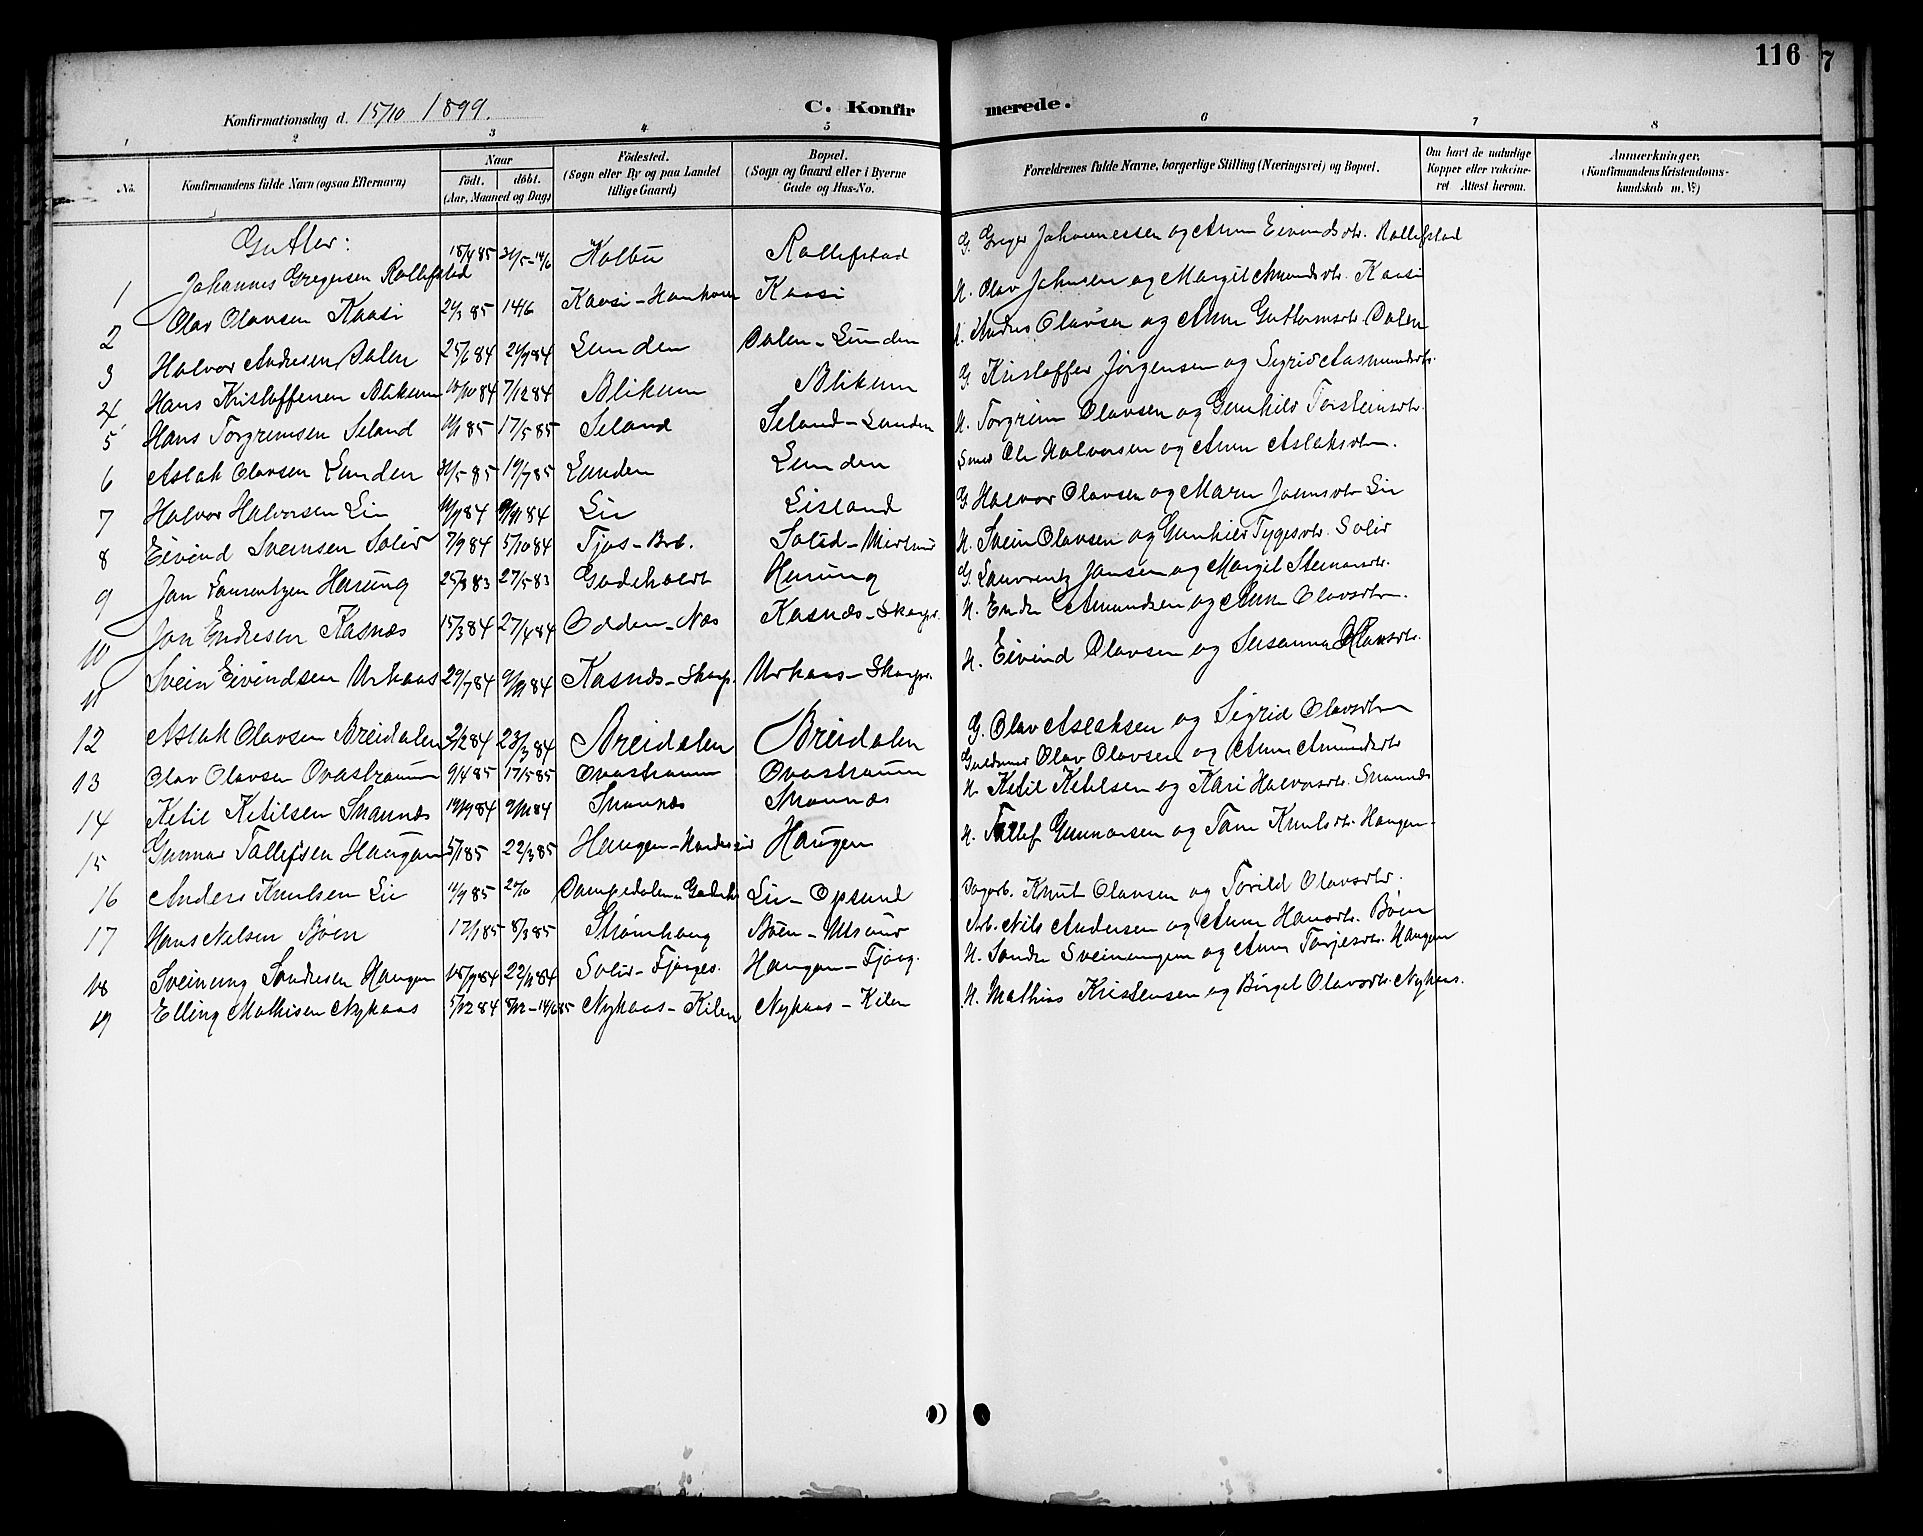 116
7
Konfirmationsdag d. 15/10 1899.
C. Konfirmerede.
1 2 3 4 5 6 7 8
No. Konfirmandens fulde Navn (ogsaa Efternavn) Naar födt. döbt. (Aar, Maaned og Dag) Födested. (Sogn eller By og paa Landet tillige Gaard) Bopæl. (Sogn og Gaard eller i Byerne Gade og Hus-No. Forældrenes fulde Navne, borgerlige Stilling (Næringsvei) og Bopæl. Om havt de naturlige Kopper eller vakcineret Attest herom. Anmærkninger. (Konfirmandens Kristendomskundskab m. V.)
Gutter:
1 Johannes Gregersen Rollefstad 18/4 85 31/5-14/6 Holbu Rollefstad G. Greger Johannessen og Anne Eivindsdtr. Rollefstad
2 Olav Olavsen Kaasi 24/3 85 14/6 Kaasi - Kaasi N. Olav Johnsen og Margit Amundsdtr. Kaasi
3 Halvor Andresen Dalen 25/6 84 21/9 84 Lunden Dalen - Lunden N. Andres Olavsen og Anne Guttormsdtr. Dalen
4 Hans Kristoffersen Blikum 10/10 84 7/12 84 Blikum Blikum G. Kristoffer Jörgensen og Sigrid Aasmundsdtr.
5 Hans Torgrimsen Seland 85 17/5 85 Seland Seland - Lunden N. Torgrim Olavsen og Gunhild Torsteinsdtr.
6 Aslak Olavsen Lunden 31/5 85 19/7 85 Lunden Lunden Smed Ole Halvorsen og Anne Aslaksdtr.
7 Halvor Halvorsen Lie 84 84 Lie Lisland G. Halvor Olavsen og Maren Johnsdtr Lie
8 Eivind Sveinsen Solid 7/9 84 5/10 84 Tjos - Brb. Solid - N. Svein Olavsen og Gunhild Tygesdtr. Solid
9 Jan Laurentzen Hasung 25/3 83 27/5 83 Hasung G. Lauvrentz Jansen og Margit Steinarsdtr.
10 Jon Endresen Kasnæs 15/3 84 27/4 84 Odden - Næs Kasnæs - N. Endre Amundsen og Anne Olavsdtr.
11 Svein Eivindsen Urkaas 29/7 84 84 Kasnæs - Urkaas - N. Eivind Olavsen og Susanna Olavsdtr.
12 Aslak Olavsen Breidalen 2/2 84 23/3 84 Breidalen Breidalen G. Olav Aslaksen og Sigrid Olavsdtr
13 Olav Olavsen Ovastraum 9/4 85 17/5 85 Ovastraum Ovastraum Olav Olavsen og Anne Amundsdtr
14 Ketil Ketilsen Smannæs 19/9 84 84 Smannæs Smannæs N. Ketil Ketilsen og Kari Halvorsdtr. Smannæs
15 Gunnar Tallefsen Haugen 85 22/3 85 Haugen - Haugen N. Tallef Gunnarsen og Tone Knutsdtr. Haugen
16 Anders Knutsen Lie 85 Lie - Opsund Knut Olavsen og Torild Olavsdtr.
17 Hans Nelsen Bøen 17/1 85 8/3 85 Strømhaug Bøen - Arb. Nils Andersen og Anne Hansdtr. Bøen
18 Sveinung Sondresen Haugen 18/9 84 84 Solid - Haugen - N. Sondre Sveinungsen og Anne Torjesdtr. Haugen
19 Elling Mathisen Nykaas 5/12 84 Nykaas - Kilen Nykaas - Kilen N. Mathias Kristensen og Birgit Olavsdtr. Nykaas.